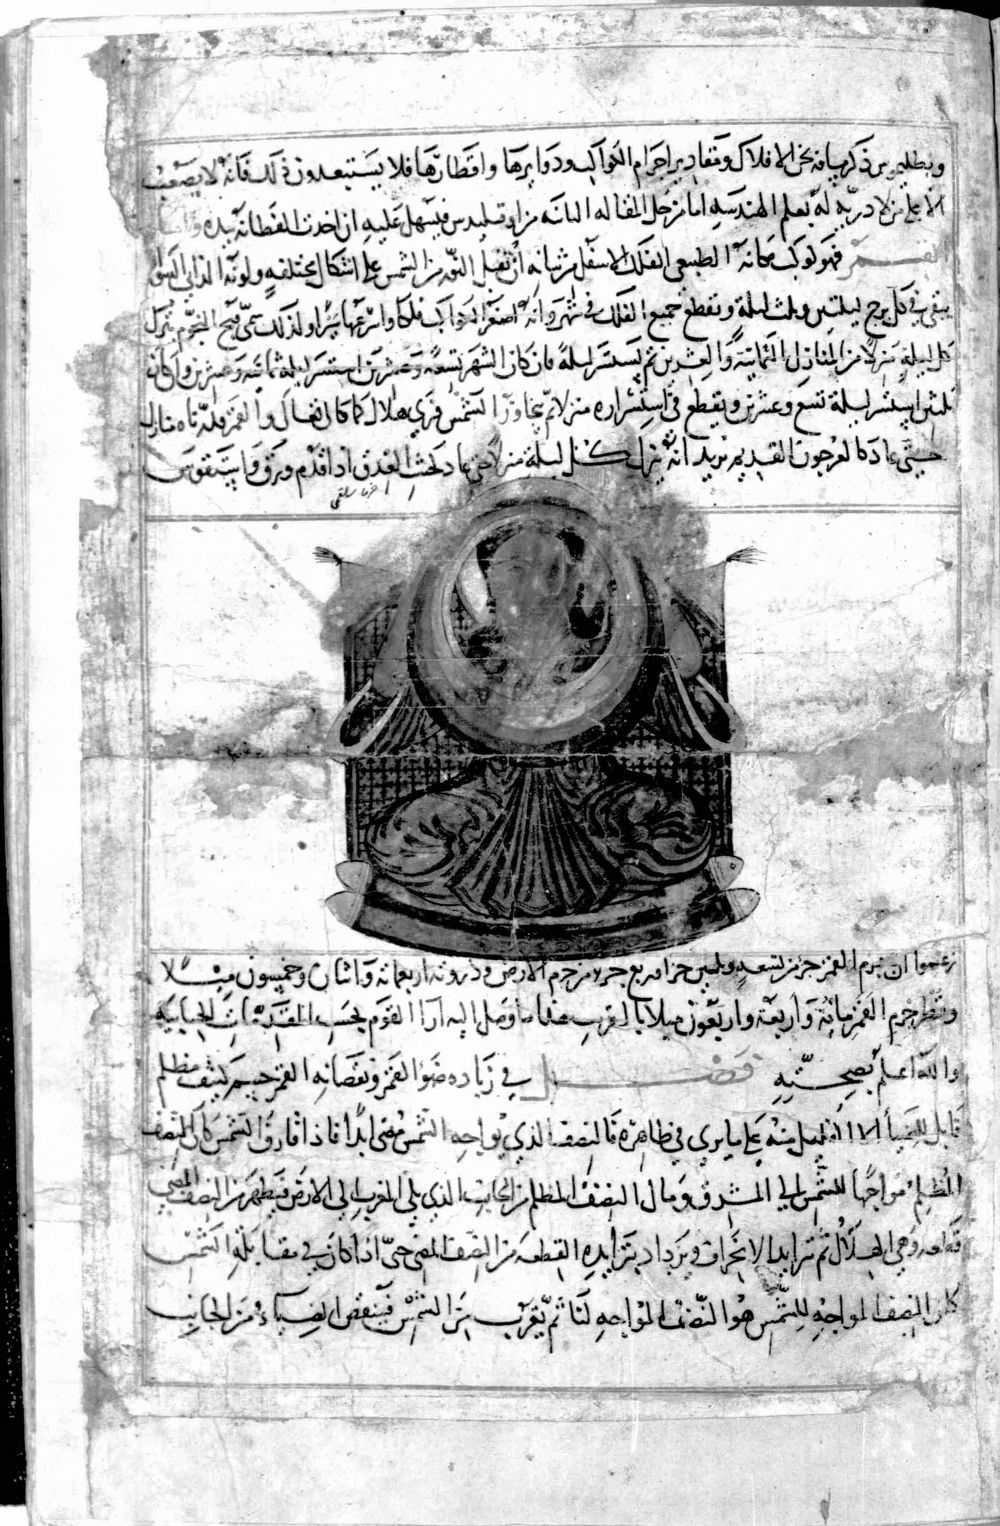 وبطليموس ذكر مسافة ثخن الافلاك ومقادير اجرام الكواكب ودوايرها واقطارها فلا يستبعدون ذلك فانه لا يصعب
الا على من لا دربة له بعلم الهندسه اما من حل المقاله الثانيه من اوقليدس فيسهل عليه ان احدث الفطانه بيده واما
القمر فهو كوكب مكانه الطبيعى الفلك الاسفل من شانه ان يقبل النور من الشمس على اشكال مختلفه ولونه الذاتى الى السواد
يبقى فى كل برج ليلتين وثلث ليلة ويقطع جميع الفلك فى شهر وانه اصغر الكواكب فلكا واسرعها سيرا ولذلك سمى فيج النجوم ينزل
كل ليلة منزلا من المنازل الثمانية والعشرين ثم يستسر ليلة فان كان الشهر تسعة وعشرين استسر ليلة ثمانية وعشرين وان كان
ثلثين استسر ليلة تسع وعشرين ويقطع فى استسراره منزلا ثم يتجاوز الشمس فيرى هلال كما كان تعالى والقمر قدرناه منازل
حتى عاد كالعرجون القديم يريد انه ينزل كل ليلة منزلا حتى عاد العذق اذا قدم ورق واستقوس
زعموا ان جرم القمر جزء من تسعه وثلثين جزا وربع جزء من جرم الارض ودوره اربعمائه واثنان وخمسون ميلا
وقطر جرم القمر مائة واربعة واربعون ميلا بالتقريب هذا ما وصل اليه آرا القوم بحسب المقدمات الحسابيه
والله اعلم بصحته فصل فى زياده ضو القمر ونقصانه القمر جسم كثيف مظلم
قابل للضيا الا القليل منه على ما يرى فى ظاهره فالنصف الذى يواجه الشمس مضى ابدا فاذا قارن الشمس كان النصف
المظلم مواجها للشمس الى المشرق ومال النصف المظلم من الجانب الذى يلى المغرب الى الارض فيظهر من النصف المضى
قطعه وهى الهلال ثم تزايد الانحراف ويزداد بتزايده القطعه من النصف المضى حتى اذا كان فى مقابلة الشمس
كان النصف المواجه للشمس هو النصف المواجه لنا ثم يقرب من الشمس فينقص الضياء من الجانب